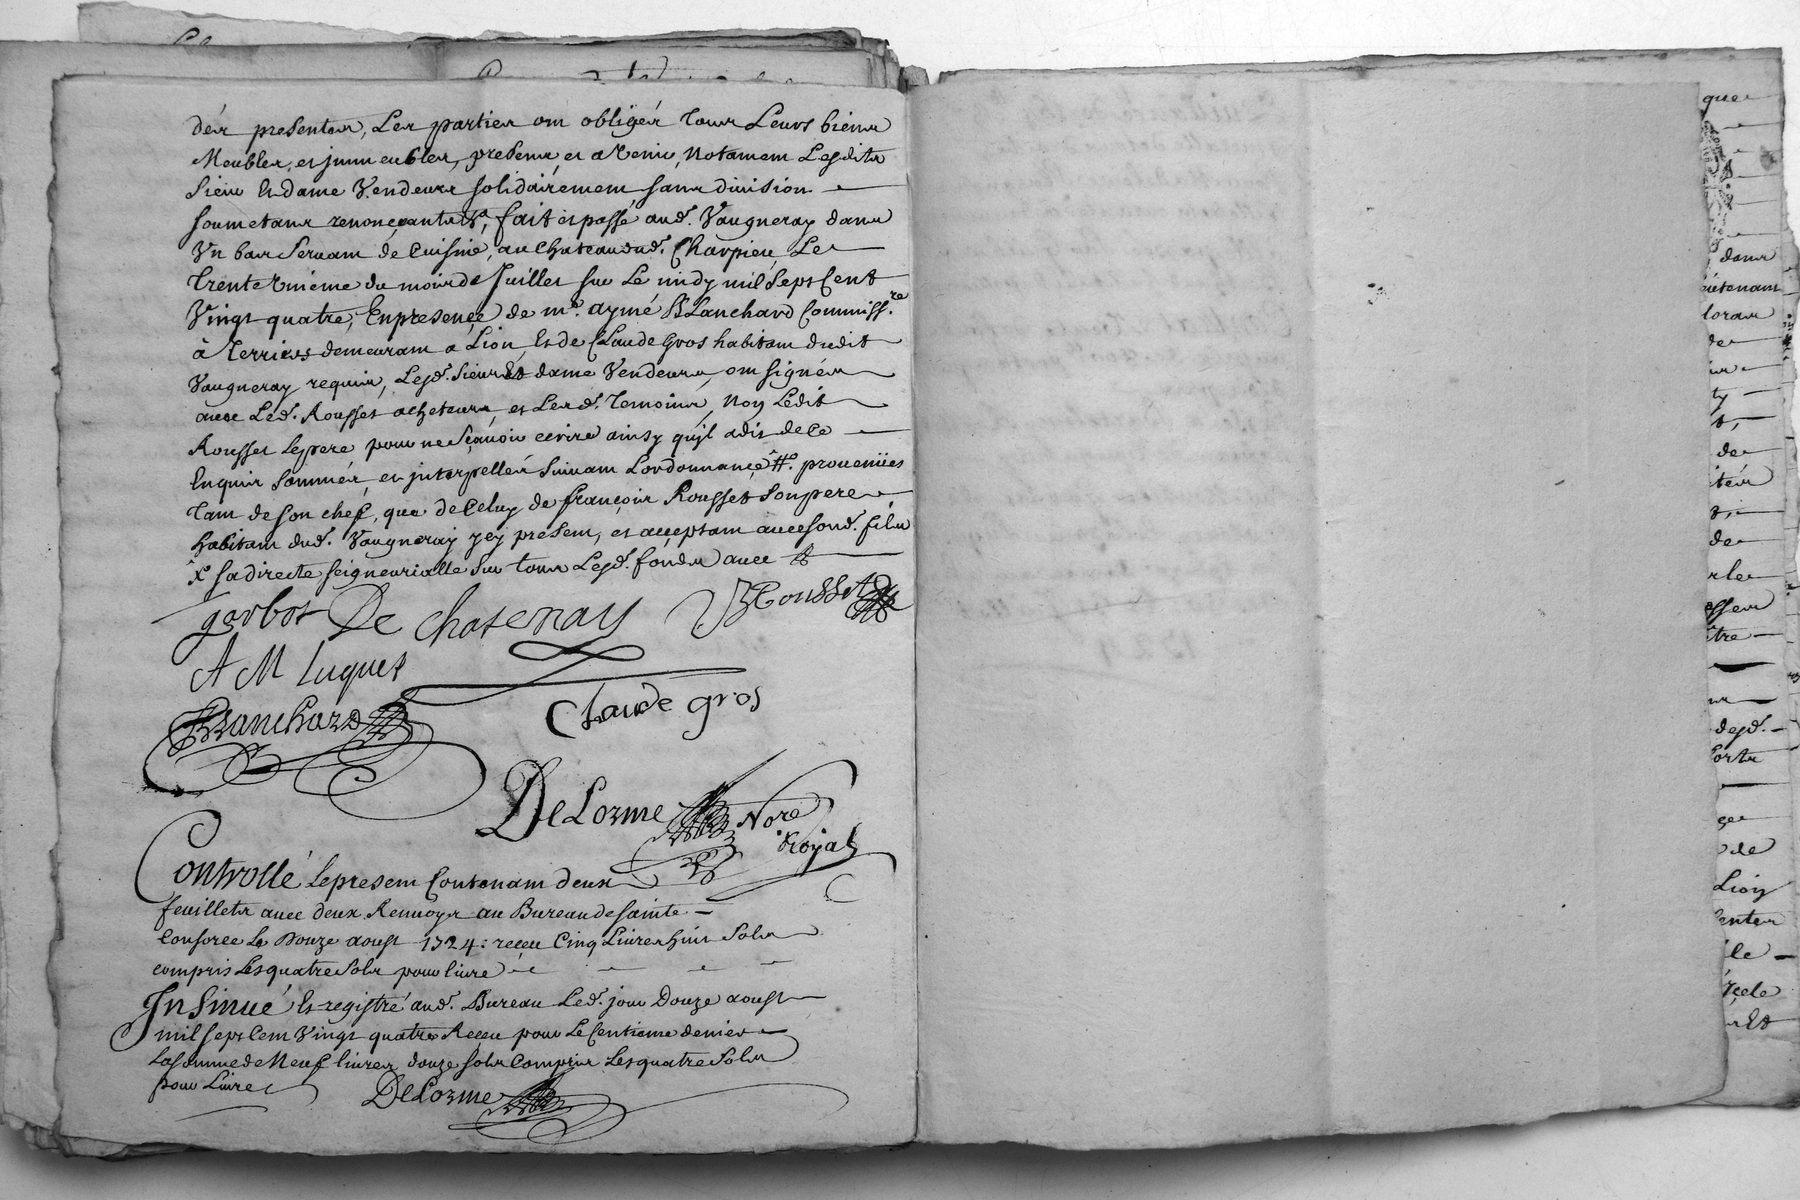 dés presentes, Les parties ont obligés tous Leurs biens
Meubles, et jmmeubles, presens, et avenir, Notament Lesdits
Sieur Et dame Vendeurs solidairement sans division
soumetans renonçeant &ª, fait et passé aud. Vaugneray dans
Vn bas servant de Cuisine, au Chateau dud. Charpieu, Le
trente Vnième du mois de Juillet sur Le midy mil Sept Cent
Vingt quatre, En presençe de mᵉ. aymé Blanchard Commiss.re
à terriers demeurant a Lion, Et de Claude Gros habitant dudit
Vaugneray requis, Lesd. Sieur Et dame Vendeurs, ont signés
avec Led. Rousset acheteur, et Lesd. temoins, Non Ledit
Rousset Le pere pour ne sçavoir ecrire ainsy qu'jl a dit de Ce
Enquis sommés, et jnterpellés suivant Lordonnançe #. provenües
tant de son chef, que de Celuy de françois Rousset son pere
habitant dud. Vaugneray jcy present, et acceptant avec sond. fils
X sa directe seigneurialle sur tous Lesd. fonds avec
gerbot De chatenay Rousset
A M luquet
Blanchard
Claude gros
DeLorme Nore
Royal
Controllé Le present Contenant deux
feuillets avec deux Renvoys au Bureau de sainte
Consorce Le Douze aoust 1724: receu Cinq Livres huit Sols
compris Les quatre Sols pour livre
Jnsinué Et registré aud. Bureau Led. jour Douze aoust
mil sept Cent Vingt quatre Receu pour Le Centieme denier
La somme de Neuf livres douze sols Compris Les quatre Sols
pour Livre
DeLorme
que
dans
de
ty
de
de
tre
desd.
de
Lion
le